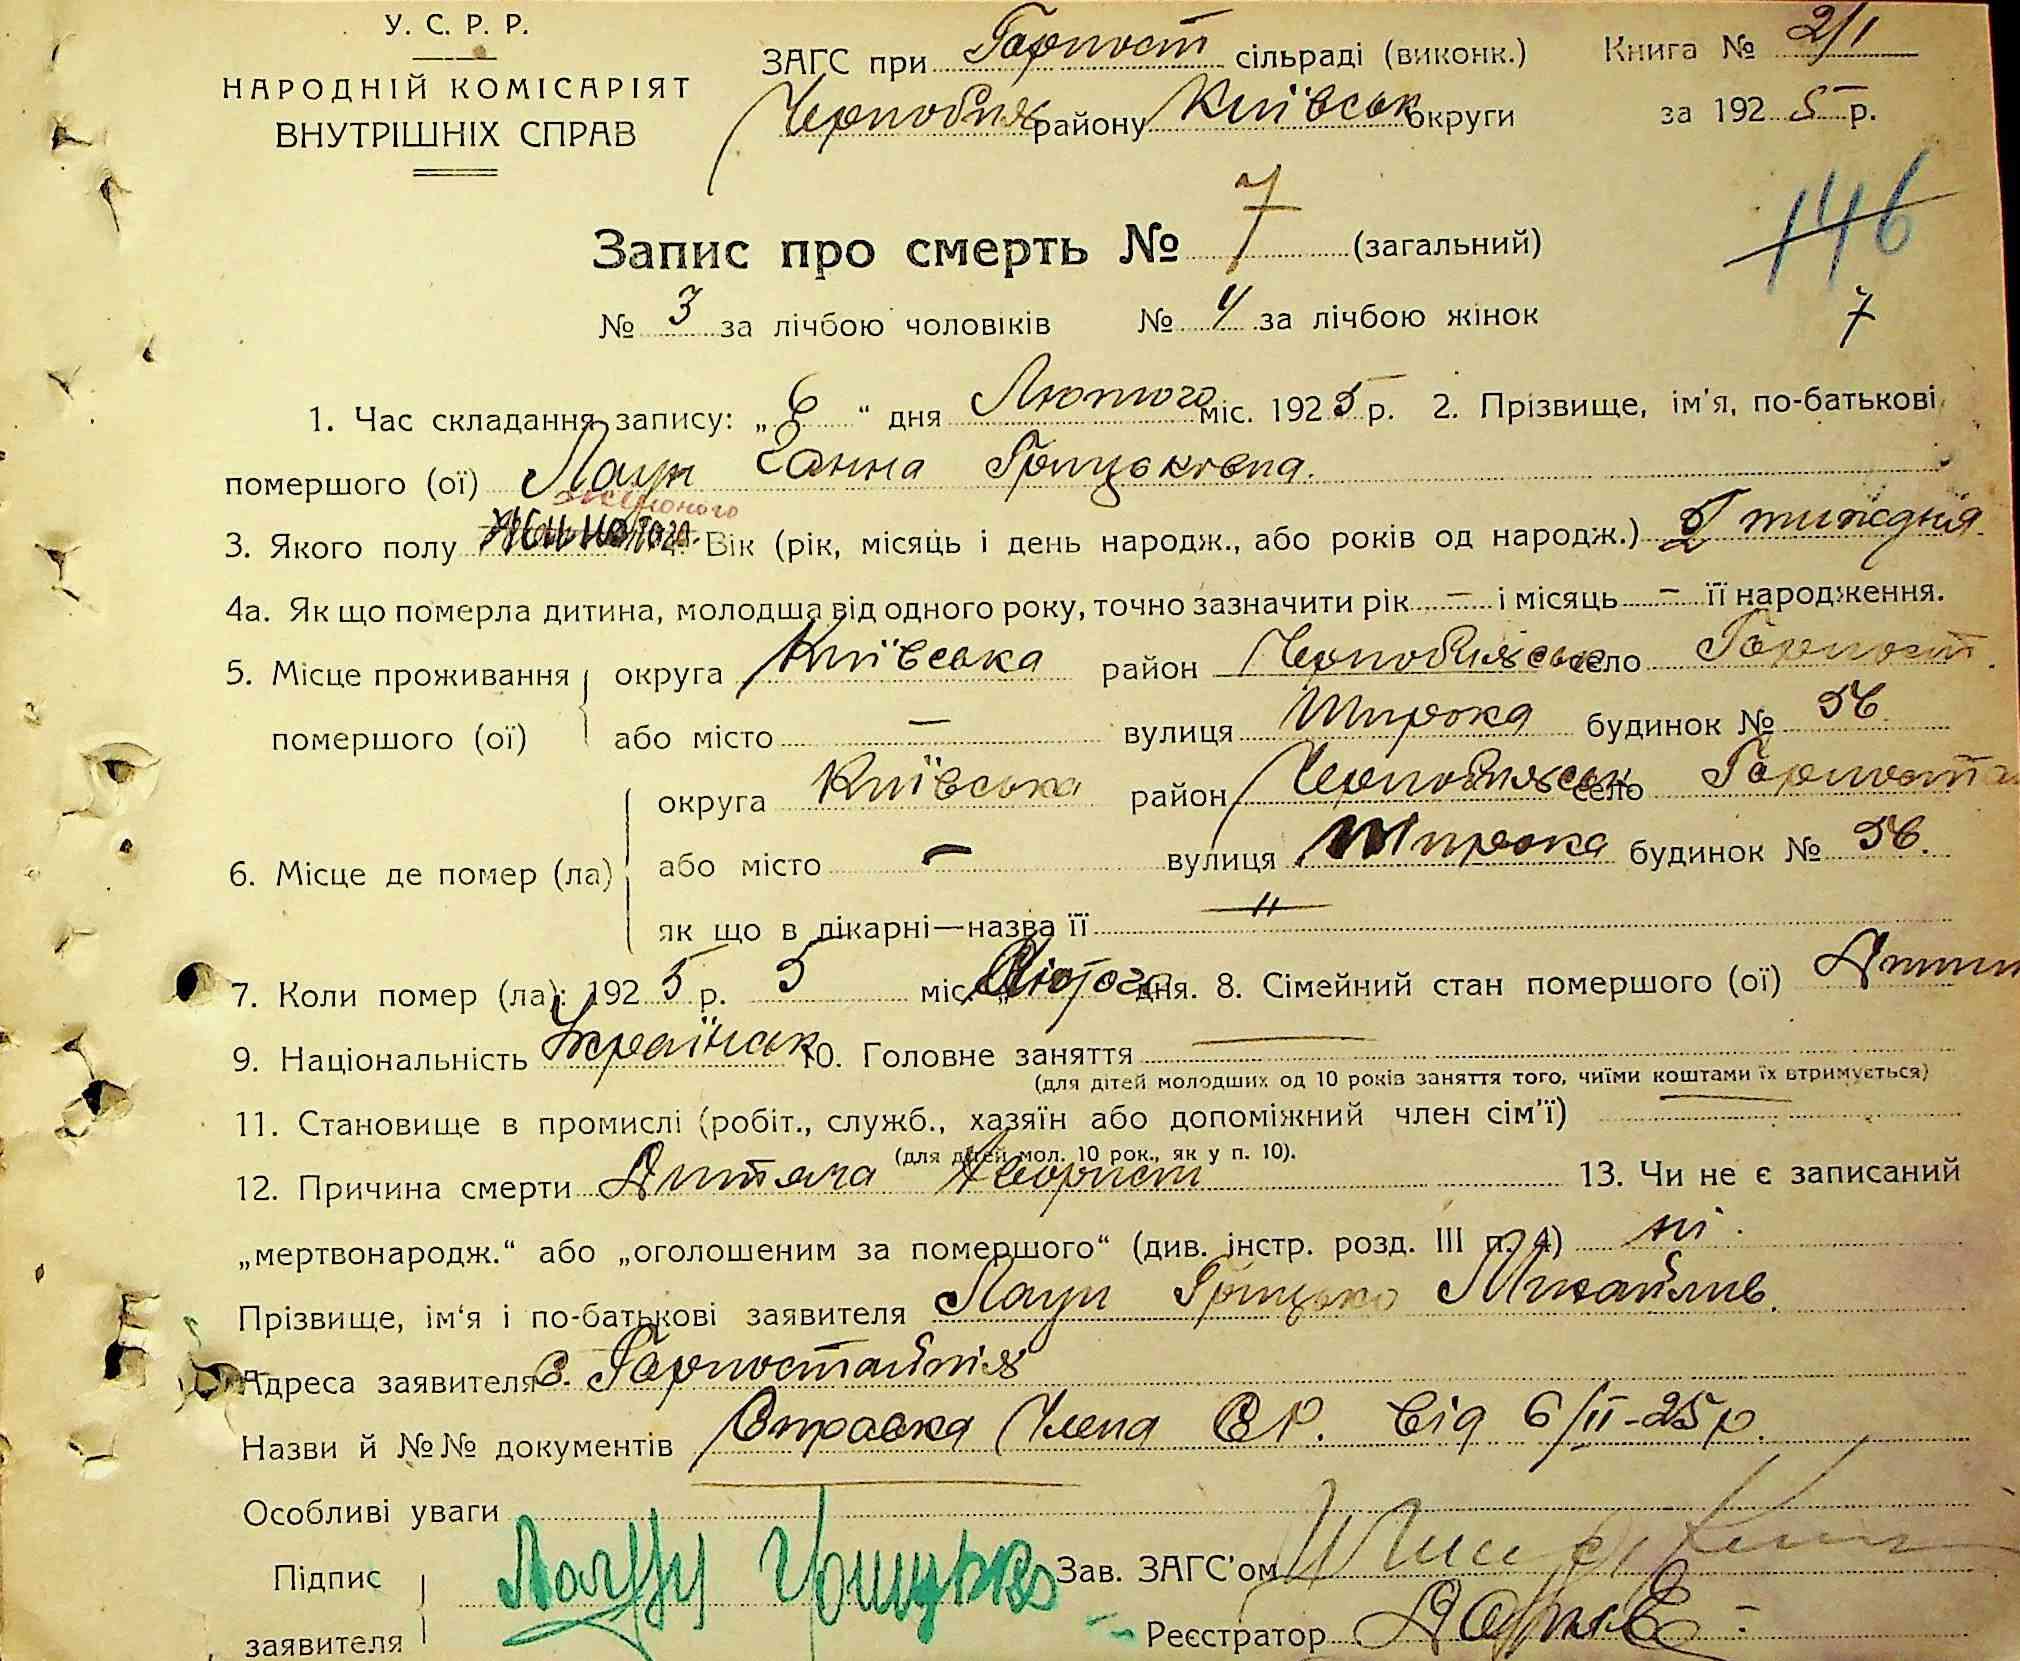 У. С. Р. Р.
НАРОДНІЙ КОМІСАРІЯТ
ВНУТРІШНІХ СПРАВ
ЗАГС при Горност сільраді (виконк.) Книга № 2/1
Чорнобил району Київськ округи за 1925 р.
146
Запис про смерть № 7 (загальний)
№ 3 за лічбою чоловіків № 4 за лічбою жінок 7
1. Час складання запису: „6“ дня Лютого міс. 1925 р. 2. Прізвище, ім'я, по-батькові
помершого (ої) Ганна Грицьковна.
3. Якого полу жіночого Вік (рік, місяць і день народж., або років од народж.) 2 тижедня.
4а. Як що померла дитина, молодша від одного року, точно зазначити рік — і місяць — її народження.
5. Місце проживання округа Київська район Чорнобильськ село Горност.
помершого (ої) або місто — вулиця Широка будинок № 56
округа Київська район Чорнобильськ село Горностай
6. Місце де помер (ла) або місто — вулиця Широка будинок № 56.
як що в лікарні—назва її — " —
7. Коли помер (ла): 1925 р. 5 міс. „Лютого дня. 8. Сімейний стан помершого (ої)
9. Національність Українськ 10. Головне заняття —
(для дітей молодших од 10 років заняття того, чиїми коштами їх втримується)
11. Становище в промислі (робіт., служб., хазяїн або допоміжний член сім'ї) —
(для дітей мол. 10 рок., як у п. 10).
12. Причина смерти Дитяча 13. Чи не є записаний
„мертвонародж.“ або „оголошеним за помершого“ (див. інстр. розд. III п. 4) ні.
Прізвище, ім'я і по-батькові заявителя Грицько Михайлів.
Адреса заявителя с. Горностайпіль
Назви й №№ документів Справка Члена С.Р. від 6/II-25 р.
Особливі уваги —
Підпис заявителя Грицько Зав. ЗАГС'ом
Реєстратор